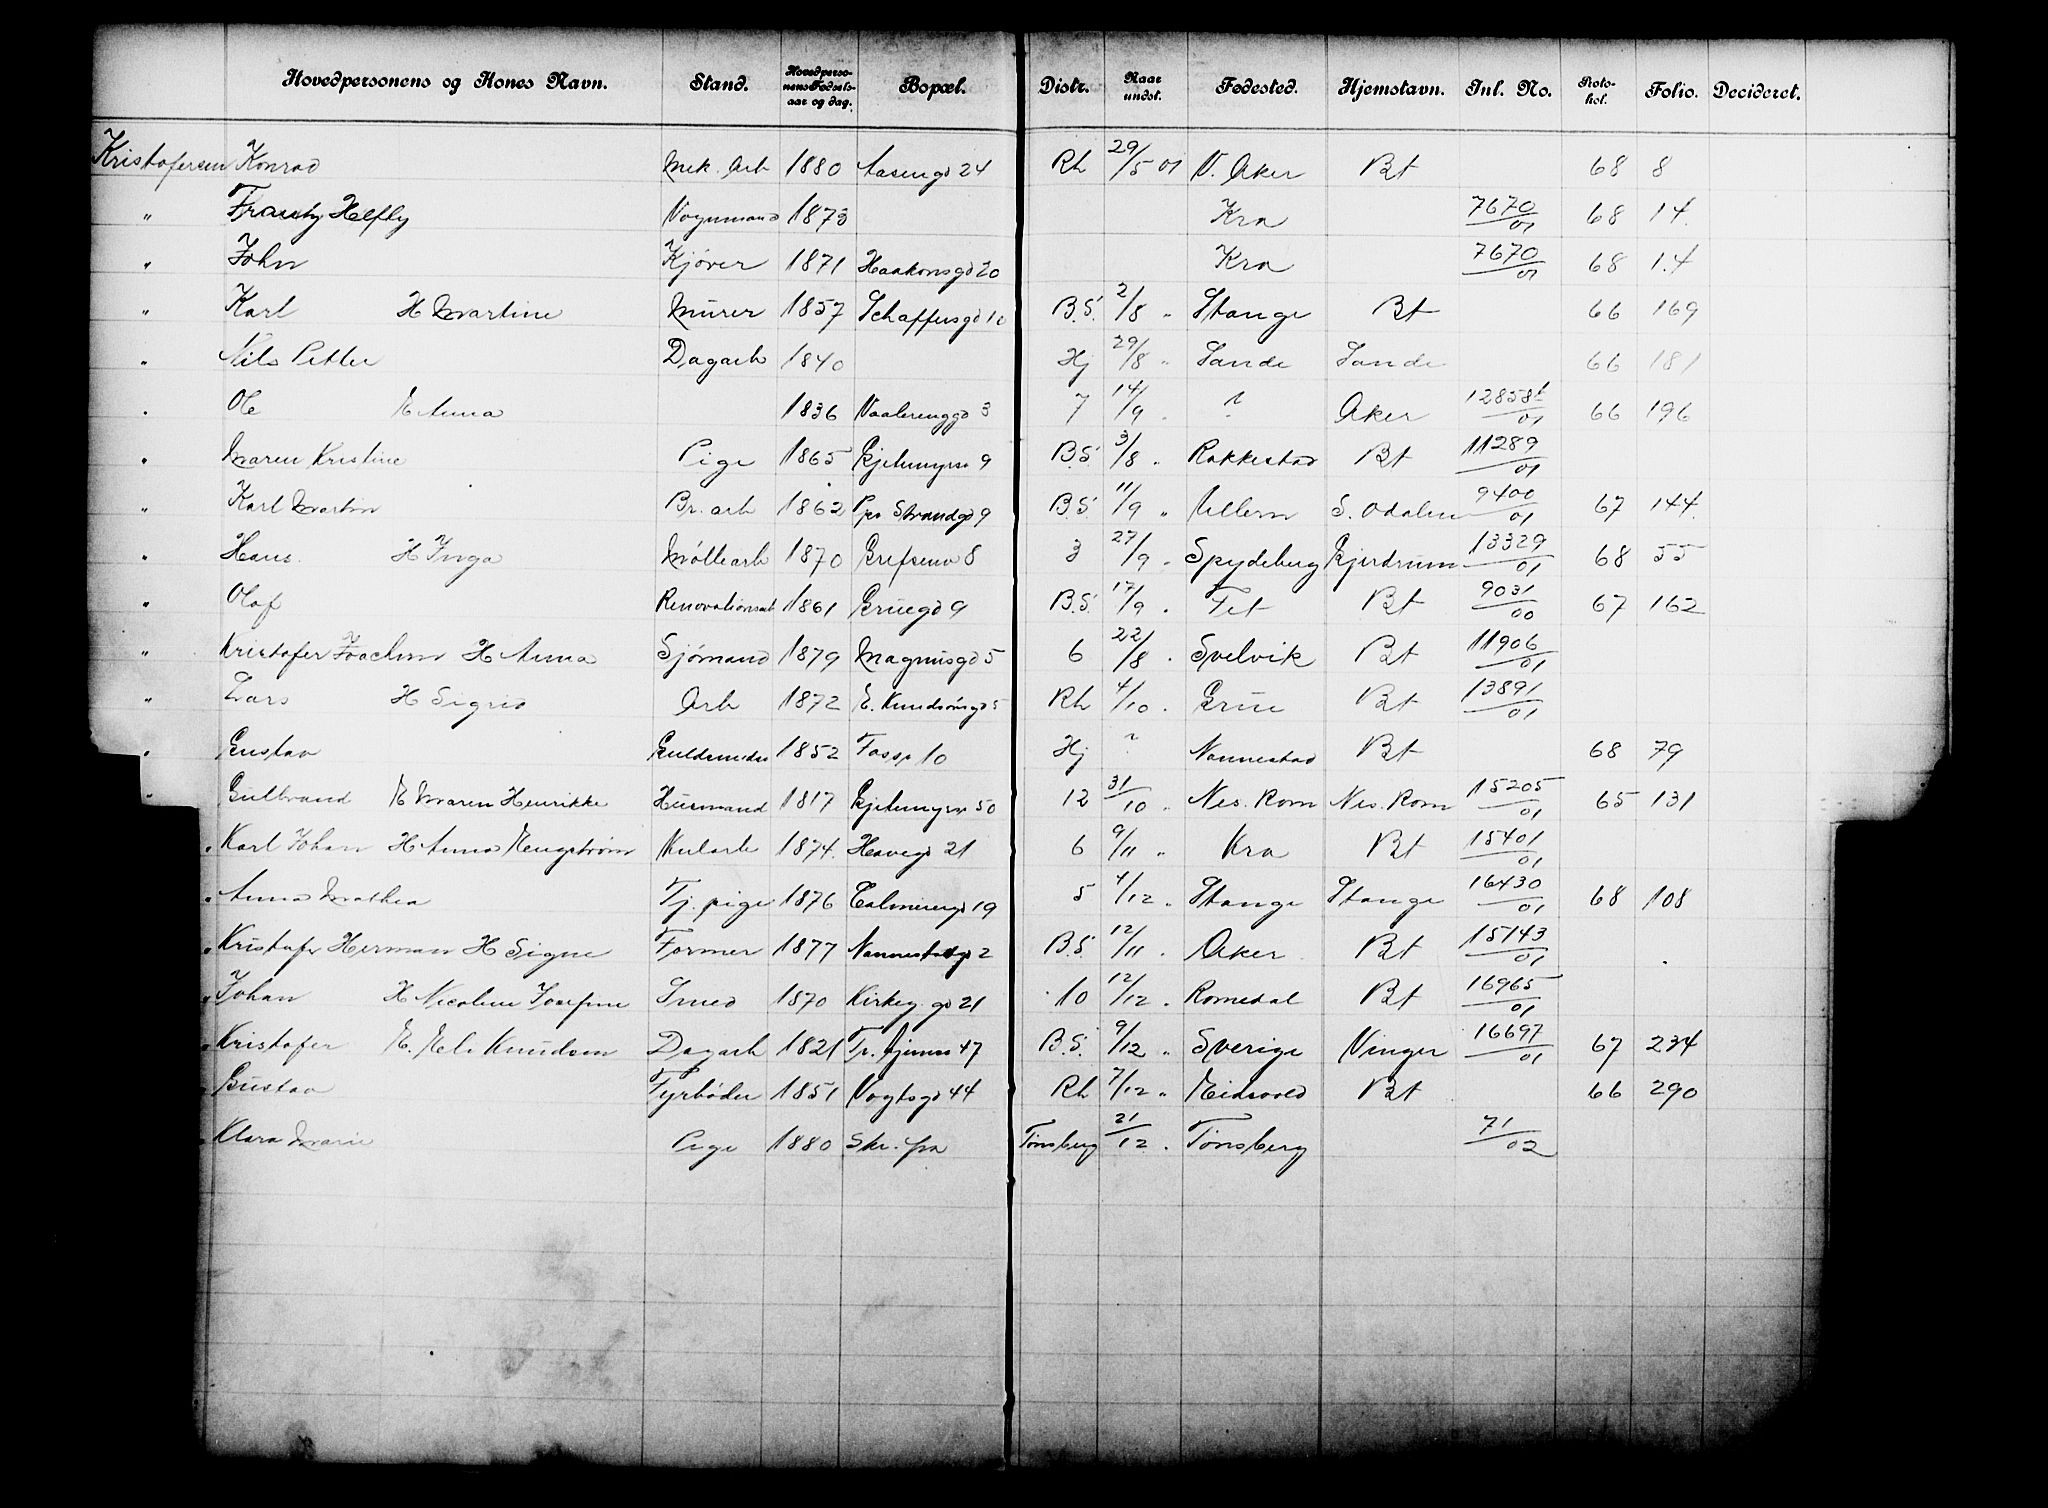 Hovedpersonens og Kones Navn. Stand. Hovedperso-nens Fødsels-aar og dag. Bopæl. Distr. Naar undst. Fødested. Hjemstavn. Inl. No. Proto-kol. Folio. Decideret.
Kristofersen Konrad Mek. Arb 1880 Aasengd 24 Rh 29/5 01 V. Aker Bt 68 8
" Vognmand 1873 Kra 7670/01 68 14.
" John Kjører 1871 Haakonsgd 20 Kra 7670/01 68 14
" Karl H Martine Murer 1857 Schaffusgd 10 B.S. 2/8 " Stange Bt 66 169
" Nils Petter Dagarb 1840 Hj 29/8 " Sande Sande 66 181
" Ole E Anna 1836 Vaalerenggd 3 7 14/9 " ? Aker 12858/01 66 196
" Maren Kristine Pige 1865 Gjetemyrsv 9 B.S. 3/8 " Rakkestad Bt 11289/01
" Karl Martin Br. arb 1862 Pr Strandgd 9 B.S. 11/9 " Ullern S. Odalen 9400/01 67 144.
" Hans H Inga Møllearb 1870 Grefsenv 8 3 27/9 " Spydeberg Gjerdrum 13329/01 68 55
" Olaf Renovationsarb 1861 Gruegd 9 B.S. 17/9 " Fet Bt 9031/00 67 162
" Kristofer Joachim H Anna Sjømand 1879 Magnusgd 5 6 22/8 " Svelvik Bt 11906/01
" Lars H Sigrid Arb 1872 E. Knudsønsgd 5 Rh 4/10 " Grue Bt 13891/01
" Gustav Guldsmedsv 1852 Fossv 10 Hj ? Nannestad Bt 68 79
" Gulbrand E Maren Henrikke Husmand 1817 Gjetemyrsv 50 12 31/10 " Nes. Rom Nes. Rom 15205/01 65 131
" Karl Johan H Anna Engstrøm Kularb 1874. Havegd 21 6 9/11 " Kra Bt 15401/01
" Anna Mathea Tj. pige 1876 Calmeiergd 19 5 4/12 " Stange Stange 16430/01 68 108
" Kristofer Herman H Signe Former 1877 Nannestadgd 2 B.S. 12/11 " Aker Bt 15143/01
" Johan H Nicoline Josefine Smed 1870 Kirkeg. gd 21 10 12/12 " Romedal Bt 16965/01
" Kristofer E. Eli Knudsen Dagarb 1821 Tr. hjemsv 47 B.S. 9/12 " Sverige Vinger 16697/01 67 234
" Gustav Fyrbøder 1851 Vogtsgd 44 Rh 7/12 " Eidsvold Bt 66 290
" Klara Marie Pige 1880 Skr. fra Tønsberg 21/12 " Tønsberg 71/02